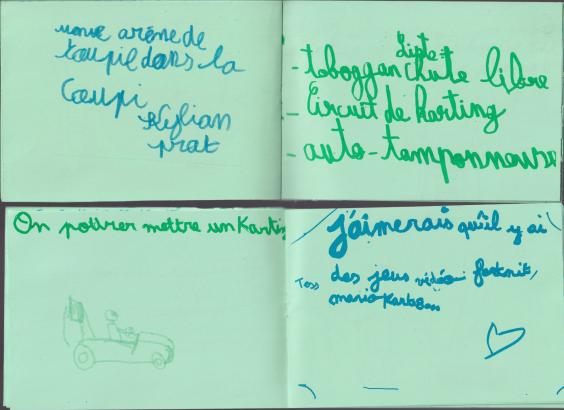 une arène de
toupie dans la
Coupi
Kylian
prat
liste
- toboggan chute libre
- Circuit de karting
- auto-tamponneuse
On pourrer mettre un Karting
j'aimerais qu'il y ai
des jeux vidéo fortnit,
mario Kart